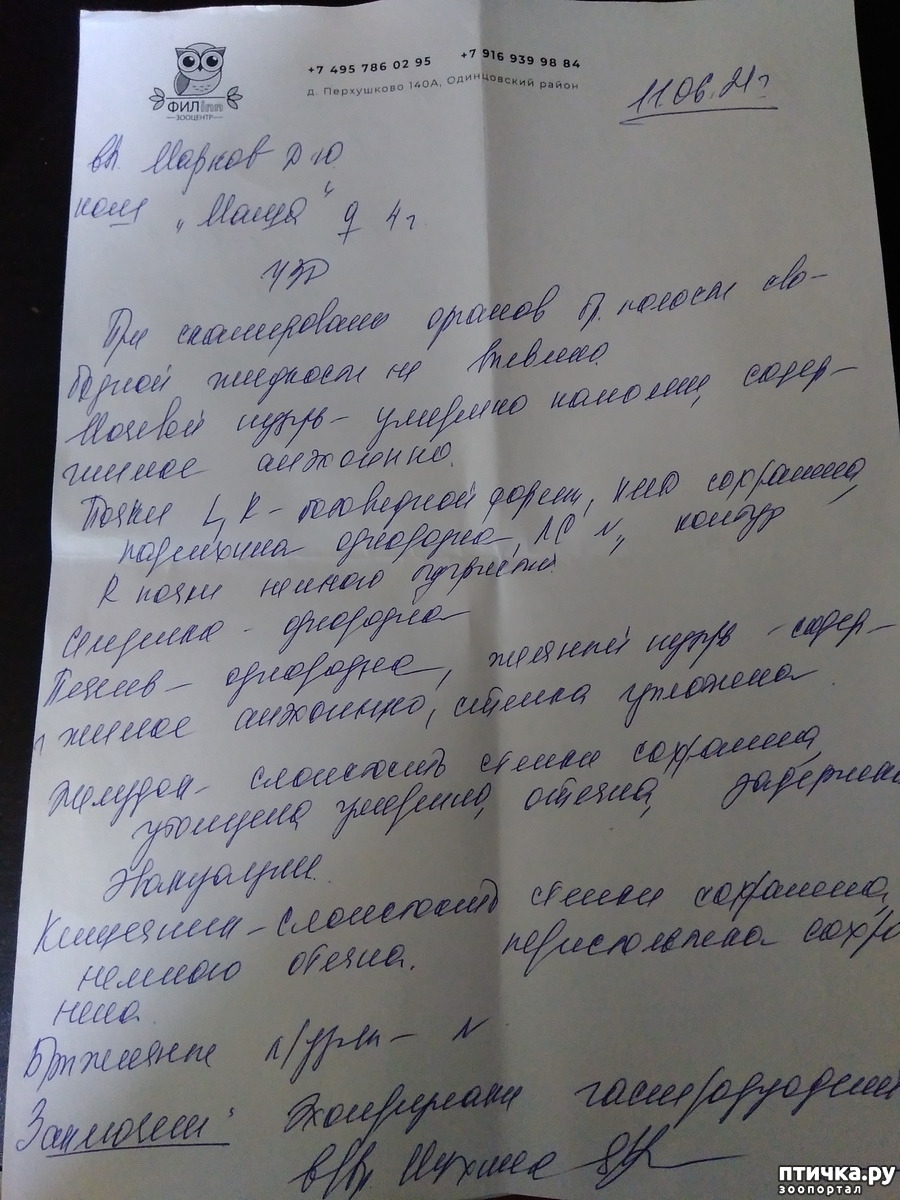 ФИЛinn
ЗООЦЕНТР
+7 495 786 02 95 +7 916 939 98 84
д. Перхушково 140А, Одинцовский район
11.06.21 г
вл. Марков Д Ю
"Маща" ♀ 4 г.
УЗИ
При сканировании органов бр. полости сво-
бодной жидкости не выявлено.
Мочевой пузырь - умеренно наполнен, содер-
жимое анэхогенно.
Почки L, R - бобовидной формы, КМД сохранена,
паренхима однородна, ЛС N, контур
R почки немного бугристый.
Селезенка - однородна
Печень - однородна, желчный пузырь - содер-
жимое анэхогенно, стенка уплотнена.
Желудок - слоистость стенки сохранена,
утолщена умеренно, отечна, задержка
эвакуации.
Кишечник - слоистость стенки сохранена,
немного отечна. перистальтика сохра
нена.
Брыжеечные л/узлы - N
Заключение: Эхопризнаки
птичка.ру
зоопортал